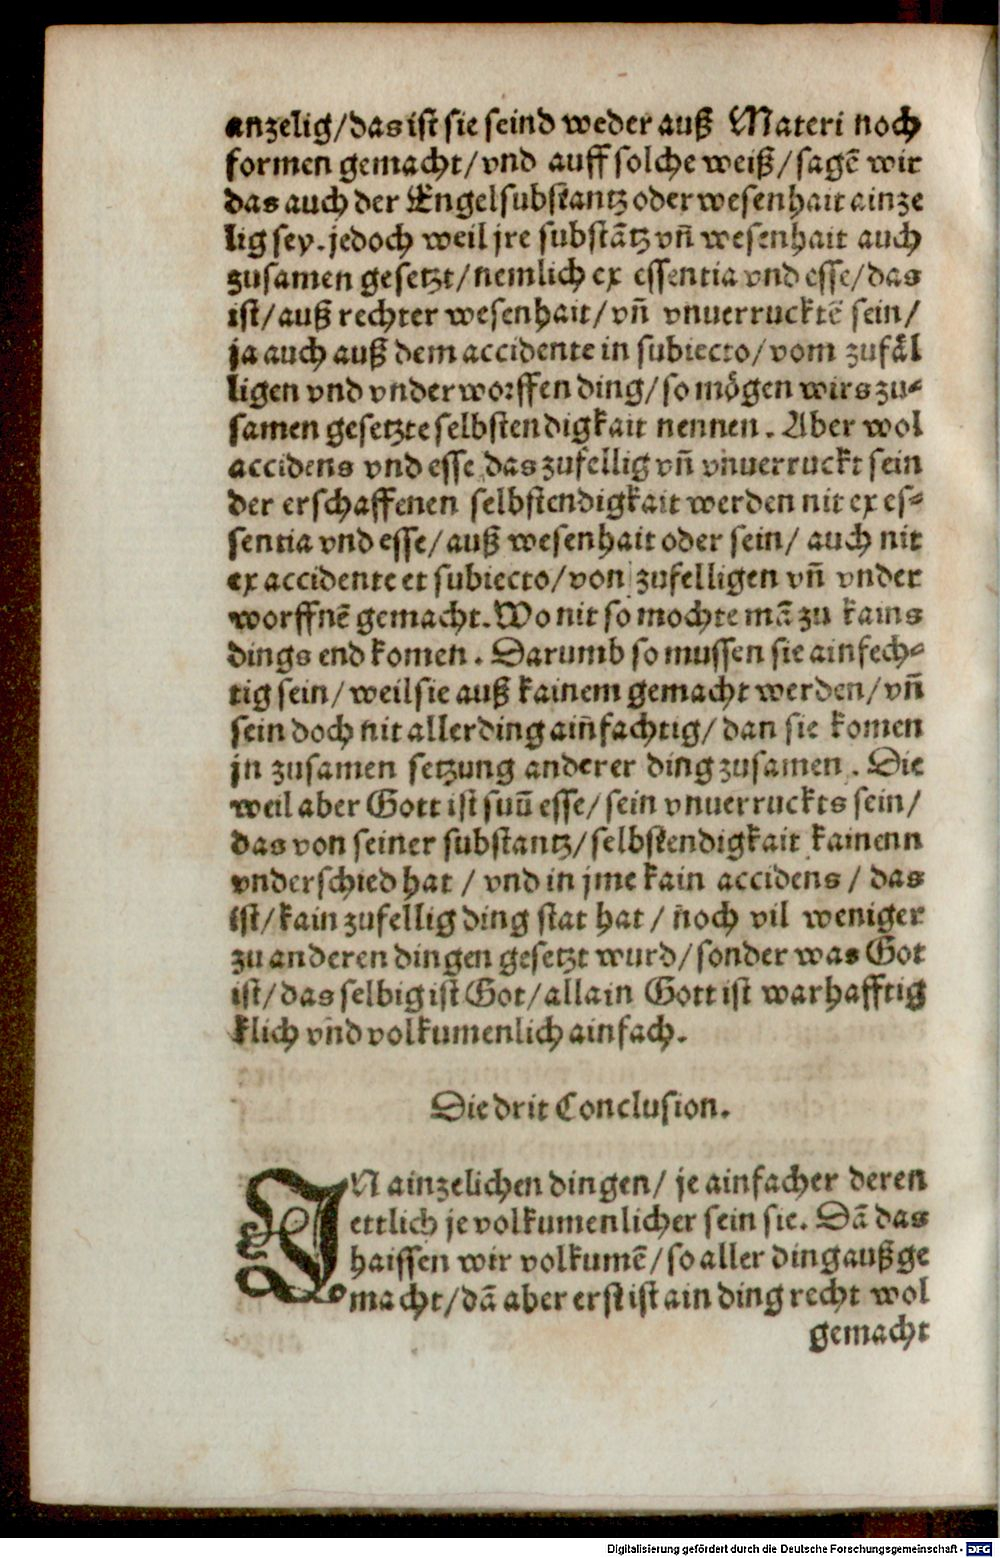 anzelig/das ist sie seind weder auß Materi noch
formen gemacht/vnd auff solche weiß/sagē wir
das auch der Engel substantz oder wesenhait ainze
lig sey. jedoch weil jre substātz vñ wesenhait auch
zusamen gesetzt/nemlich ex essentia vnd esse/das
ist/auß rechter wesenhait/vñ vnuerrucktē sein/
ja auch auß dem accidente in subiecto/vom zufäl
ligen vnd vnderworffen ding/so mögen wirs zu⸗
samen gesetzte selbstendigkait nennen. Aber wol
accidens vnd esse das zufellig vñ vnuerruckt sein
der erschaffenen selbstendigkait werden nit ex es⸗
sentia vnd esse/auß wesenhait oder sein/ auch nit
ex accidente et subiecto/von zufelligen vñ vnder
worffnē gemacht. Wo nit so mochte mā zu kains
dings end komen. Darumb so mussen sie ainfech⸗
tig sein/weil sie auß kainem gemacht werden/vñ
sein doch nit allerding ainfachtig/dan sie komen
jn zusamen setzung anderer ding zusamen. Die
weil aber Gott ist suū esse/sein vnuerruckts sein/
das von seiner substantz/selbstendigkait kainenn
vnderschied hat/vnd in jme kain accidens/das
ist/kain zufellig ding stat hat/noch vil weniger
zu anderen dingen gesetzt wurd/sonder was Got
ist/das selbig ist Got/allain Gott ist warhafftig
klich vnd volkumenlich ainfach.
Die drit Conclusion.
IN ainzelichen dingen/je ainfacher deren
ettlich je volkumenlicher sein sie. Dā das
haissen wir volkumē/so aller ding außge
macht/dā aber erst ist ain ding recht wol
gemacht
Digitalisierung gefördert durch die Deutsche Forschungsgemeinschaft - DFG